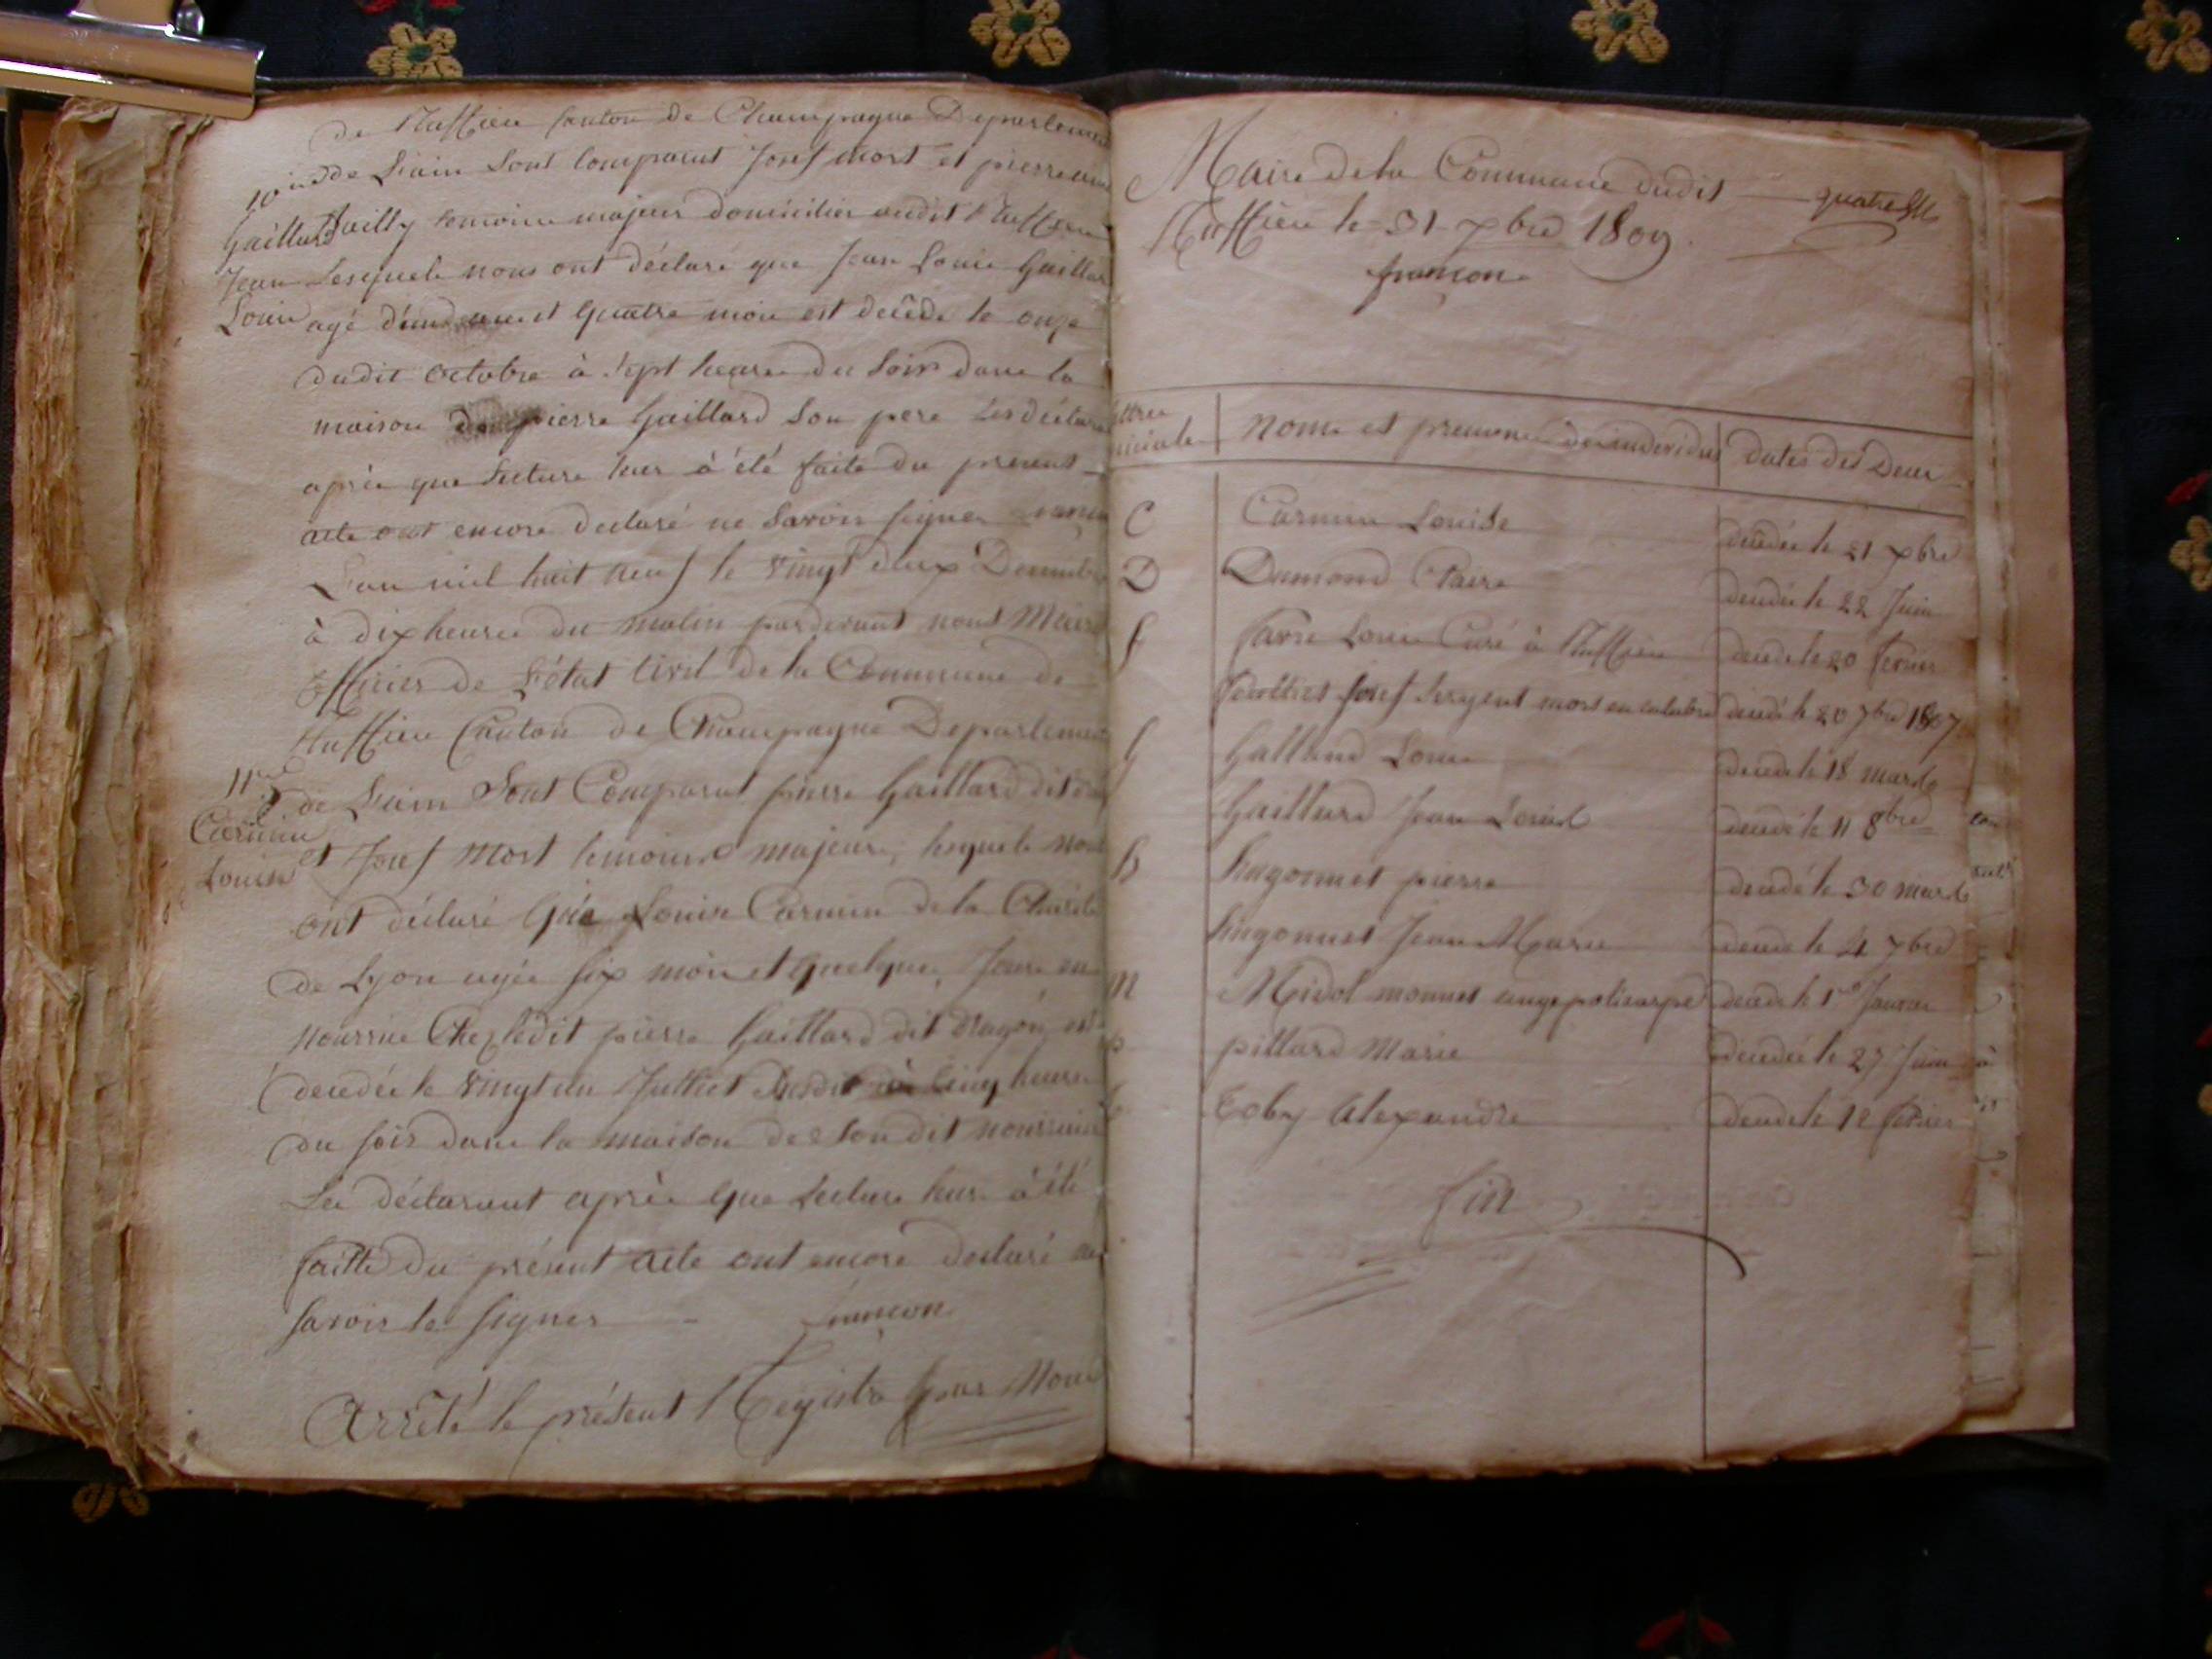 de Ruffieu Canton de Champagne Departement
10me de L'ain Sont Comparut Josef Mort et pierre
Gaillard Jailly temoins majeurs domiciliés audit Ruffieu
Jean Lesquels nous ont déclaré que Jean Louis Gaillard
Louis agé et quatre mois est decédé le onze
dudit octobre à sept heures du Soir dans la
maison de pierre Gaillard Son pere Les déclara
après que Lecture leur à été faite du présent
acte ont encore declaré ne Savoir signer
L'an mil huit neuf le vingt deux Decembre
à dix heures du matin pardevant nous Maire
officier de L'état Civil de la Commune de
Ruffieu Canton de Champagne Departement
11me de L'ain Sont Comparut pierre Gaillard dit
Carmin et Josef Mort temoins majeurs, lesquels nous
Louise
ont déclaré que Louise Carmin de la Charité
de Lyon agée six mois et quelques Jours en
nourrice Chez ledit pierre Gaillard dit dragon, est
decedée le vingt un à Cinq heures
du soir dans la maison de son dit nourricier
Les déclarant après que Lecture leur à été
faitte du présent acte ont encore declaré ne
savoir le signer françon
Arrêté le présent Registre par Nous
Maire de la Commune dudit quatre
Ruffieu le 31 xbre 1809.
françon
Noms et prenoms des individus dates des Deces
C Carmin Louise decedée le 21 xbre
D Dumond Claire decedée le 22 Juin
f favre Louis Curé à Ruffieu decedé le 20 fevrier
Josef Sergent mort en calabre decedé le 20 7bre 1807
G Galland Louis decedé le 18 mars
Gaillard Jean Louis decedé le 11 8bre
h hugonnet pierre decedé le 30 mars
hugonnet Jean Marie decedé le 4 7bre
M Midol monnet ange policarpe decedé le 1er Janvier
p pillard Marie decedée le 27 Juin
Toby Alexandre decedé le 12 fevrier
fin